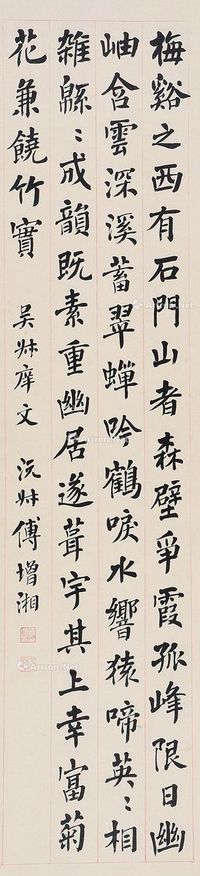 梅谿之西有石門山者森壁爭霞孤峰限日幽
岫含雲深溪蓄翠蟬吟鶴唳水響猿啼英〻相
雜緜〻成韻既素重幽居遂葺宇其上幸富菊
花兼饒竹實
吳叔庠文 沅叔傅增湘